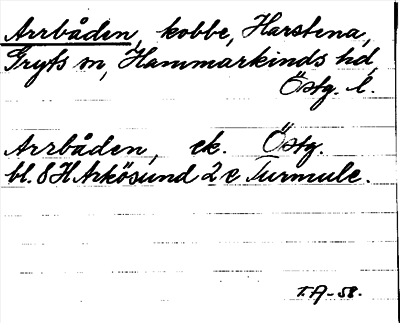 Arrbåden, kobbe, Harstena,
Gryts sn, Hammarkinds hd,
Östg. l.
Arrbåden, ek. Östg.
bl. 8 H Arkösund 2 e Turmulc.
T.A-58.